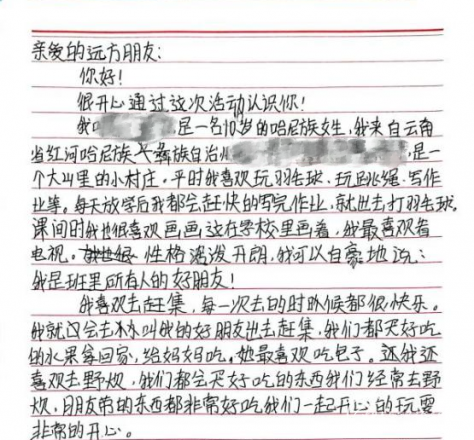 亲爱的远方朋友:
你好!
很开心通过这次活动认识你!
我 是一名10岁的哈尼族女生,我来自云南
省红河哈尼族彝族自治州 是一
个大山里的小村庄,平时我喜欢玩羽毛球、玩跳绳、写作
业等。每天放学后我都会赶快的写完作业,就出去打羽毛球,
课间时我也很喜欢画画这在学校里画着,我最喜欢看
电视。性格活泼开朗,我可以自豪地说:
我是班里所有人的好朋友!
我喜欢去赶集,每一次去的时候都很快乐。
我就会去叫我的好朋友出去赶集,我们都买好吃
的水果拿回家,给妈妈吃。她最喜欢吃包子。还我还
喜欢去野炊,我们都会买好吃的东西我们经常去野
炊,朋友带的东西都非常好吃我们一起开心的玩耍
非常的开心。